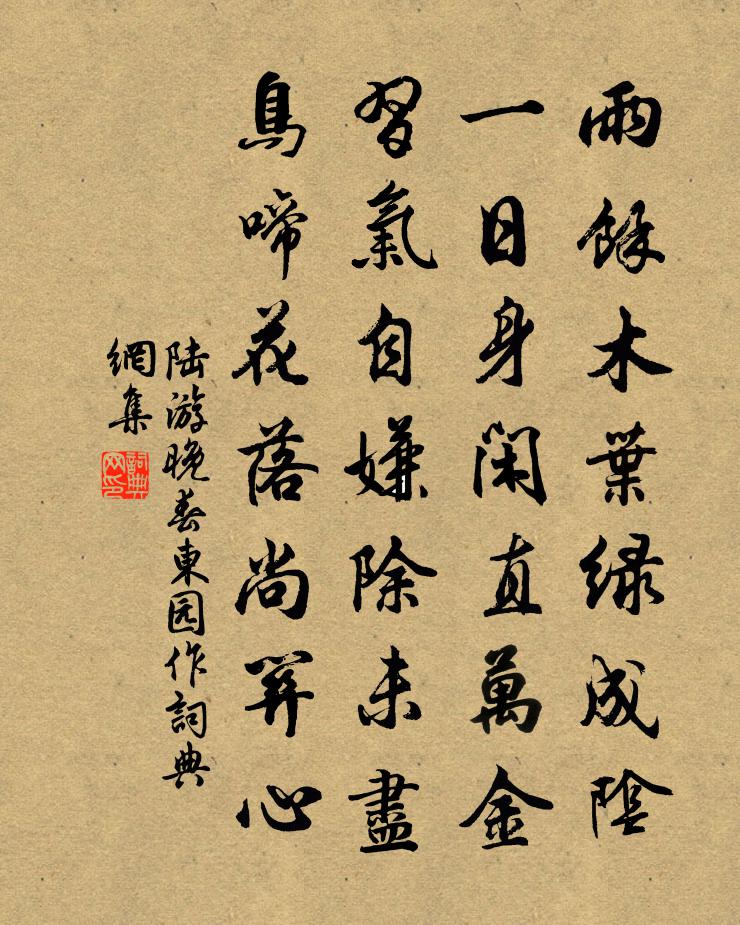 雨餘木葉緑成陰
一日身閑直萬金
習氣自嫌除未盡
鳥啼花落尚關心
陆游晚春東园作詞典
網集
詞典网印